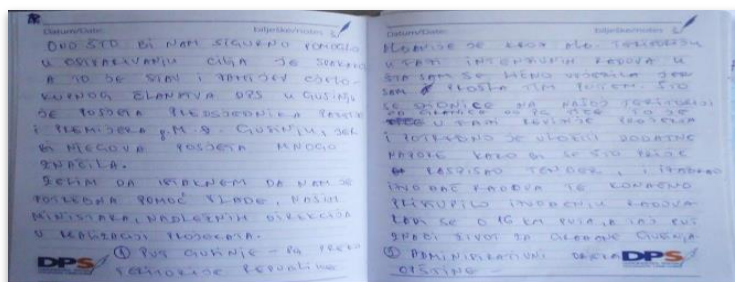 Datum/Date: bilješke/notes
ONO ŠTO BI NAM SIGURNO POMOGLO
U OSTVARIVANJU CILJA JE SVAKAKO
A TO JE STAV I ZAHTJEV CJELO-
KUPNOG ČLANSTVA DPS U GUSINJU
JE POSJETA PREDSJEDNIKA PARTIJE
I PREMIJERA g. M. Đ. GUSINJU, JER
BI NJEGOVA POSJETA MNOGO
ZNAČILA.
ŽELIM DA ISTAKNEM DA NAM JE
POTREBNA POMOĆ VLADE, NAŠIH
MINISTARA, NADLEŽNIH DIREKCIJA
U REALIZACIJI PROJEKATA.
① PUT GUSINJE - PG PREKO
TERITORIJE REPUBLIKE
DPS
Datum/Date: bilješke/notes
JE KROZ ALB. TERITORIJU
U FAZI INTENZIVNIH RADOVA U
ŠTA SAM SE LIČNO UVJERILA JER
SAM PROŠLA TIM PUTEM. ŠTO
SE DIONICE NA NAŠOJ TERITORIJI
OD GRANICE DO PG TIČE TO JE
U FAZI REVIZIJE PROJEKTA
I POTREBNO JE ULOŽITI DODATNE
NAPORE KAKO BI SE ŠTO PRIJE
RASPISAO TENDER, I IZABRAO
IZVOĐAČ RADOVA TE KONAČNO
PRISTUPILO IZVOĐENJU RADOVA.
RADI SE O 16 KM PUTA, A TAJ PUT
ZNAČI ŽIVOT ZA GRAĐANE GUSINJA.
② ADMINISTRATIVNI
OPŠTINE -
DPS